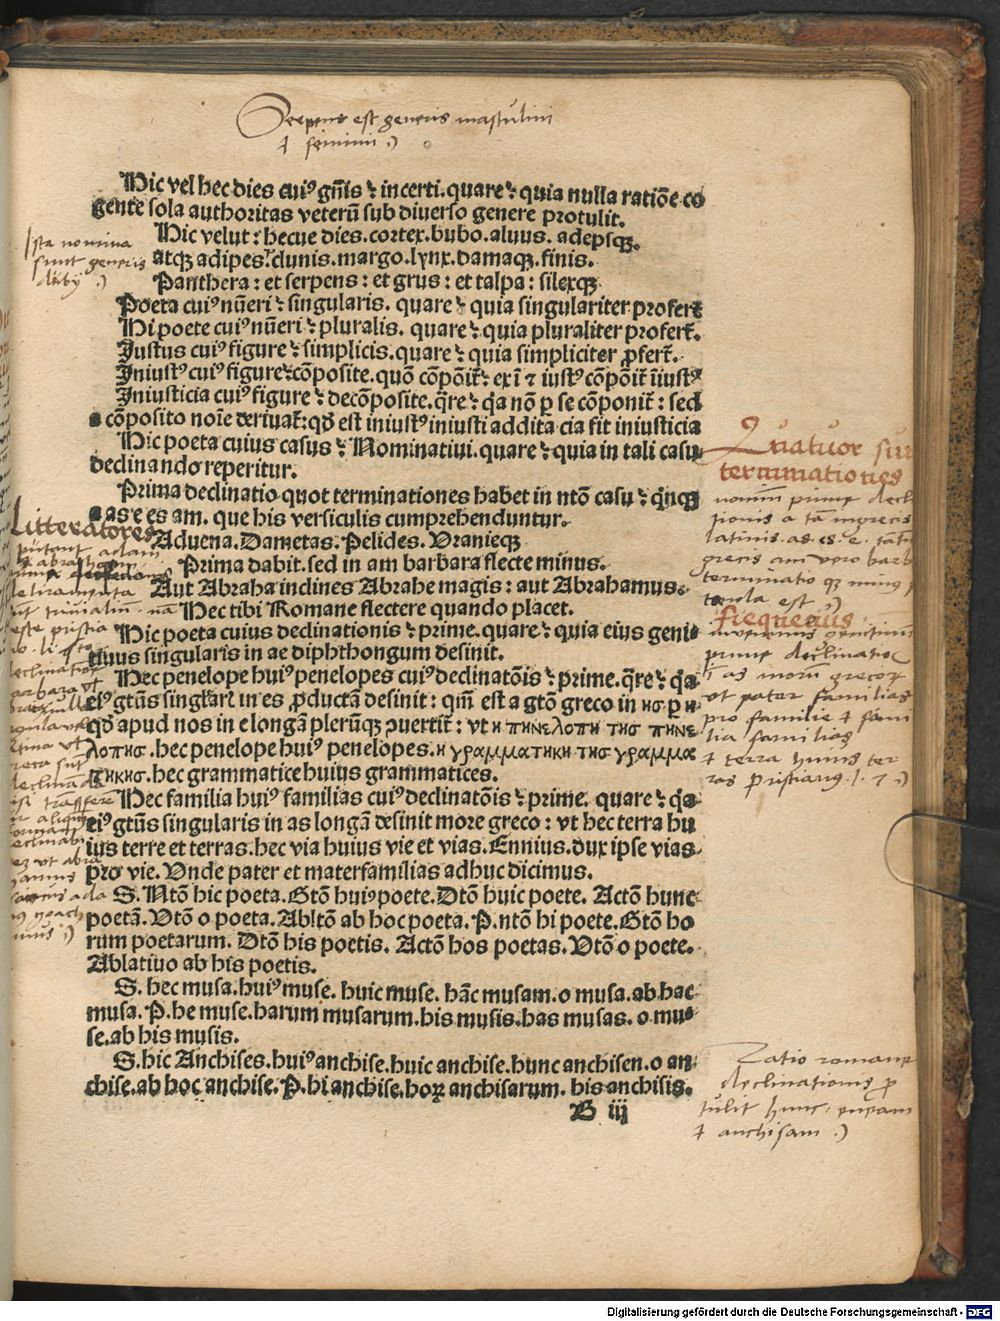 Serpens est generis masculini
& feminini .)
Hic vel hec dies cuiꝰ gñis ē incerti. quare ē quia nulla ratiõe co
gente sola authoritas veterũ sub diuerso genere protulit.
Hic velut: hecue dies. cortex. bubo. aluus. adepsꝗ.
atꝗ adipes. clunis. margo. lynx. damaꝗ. finis.
Panthera: et serpens: et grus: et talpa: silexꝗ
Ista nomina
sunt generis
dubij .)
Poeta cuiꝰ nũeri ē singularis. quare ē quia singulariter profert̃
Hi poete cuiꝰ nũeri ē pluralis. quare ē quia pluraliter profert̃.
Justus cuiꝰ figure ē simplicis. quare ē quia simpliciter ꝓfert̃.
Iniustꝰ cuiꝰ figure ē cõposite. quõ cõpõit̃ ē ex ĩ ⁊ iustꝰ cõpõit̃ ĩiustꝰ
Iniusticia cuiꝰ figure ē decõposite. q̃re ē q̃a nõ ꝑ se cõponit̃: sed
a cõposito noĩe deriuat̃: qð est iniustꝰ iniusti addita cia fit iniusticia
Hic poeta cuius casus ē Nominatiui. quare ē quia in tali casu
declinando reperitur.
Prima declinatio quot terminationes habet in ntõ casu ē q̃nꝗ
a as e es am. que his versiculis cumprehenduntur.
Aduena. Dametas. Pelides. Uranieꝗ
Prima dabit. sed in am barbara flecte minus.
Aut Abraha inclines Abrahe magis: aut Abrahamus.
Nec tibi Romane flectere quando placet.
Hic poeta cuius declinationis ē prime. quare ē quia eius geni-
tiuus singularis in ae diphthongum desinit.
Hec penelope huiꝰ penelopes cuiꝰ declinatõis ē prime. q̃re ē q̃a
eiꝰ gtũs singlarĩ in es ꝓductã desinit: qm̃ est a gtõ greco in ης ꝑ η
qð apud nos in e longã plerũꝗ ꝯuertit̃: vt η πηνελοπη της πηνε
λοπης. hec penelope huiꝰ penelopes. η γραμματικη της γραμμα
τικης. hec grammatice huius grammatices.
Hec familia huiꝰ familias cuiꝰ declinatõis ē prime. quare ē q̃a
eiꝰ gtũs singularis in as longã desinit more greco: vt hec terra hu
ius terre et terras. hec via huius vie et vias. Ennius. dux ipse vias
pro vie. Unde pater et materfamilias adhuc dicimus.
S. Ntõ hic poeta. Gtõ huiꝰ poete. Dtõ huic poete. Actõ hunc
poetã. Utõ o poeta. Abltõ ab hoc poeta. P. ntõ hi poete. Gtõ ho
rum poetarum. Dtõ his poetis. Actõ hos poetas. Utõ o poete.
Ablatiuo ab his poetis.
S. hec musa. huiꝰ muse. huic muse. hãc musam. o musa. ab hac
musa. P. he muse. harum musarum. his musis. has musas. o mu-
se. ab his musis.
S. hic Anchises. huiꝰ anchise. huic anchise. hunc anchisen. o an-
chise. ab hoc anchise. P. hi anchise. hoꝝ anchisarum. his anchisis.
B iij
Litteratores
putant adam
Quatuor sun
terminationes
latinis. as. es. e.
terminatio
est .)
frequenius
inuenimus genitiuum
prime declinatio
as more grecoꝝ
vt pater familias
pro familie & fami
lia familias
& terra huius ter
ras
Ratio romane
declinationis ꝓ
tulit hunc
& anchisam .)
Digitalisierung gefördert durch die Deutsche Forschungsgemeinschaft - DFG